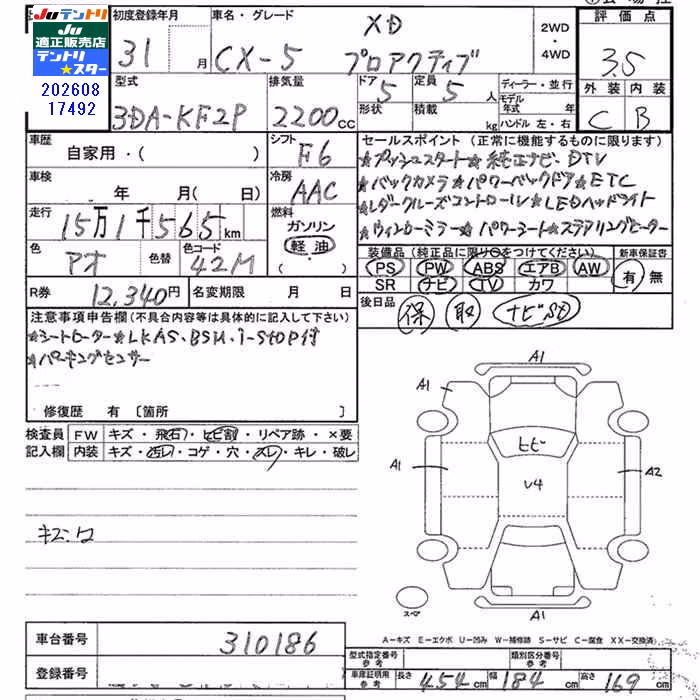 JUテントリ
JU
適正販売店
テントリ
★スター
202608
17492
初度登録年月
31 月
車名・グレード
XD
CX-5 プロアクティブ
2WD
4WD
評価点
3.5
外装 内装
C B
型式
3DA-KF2P
排気量
2200 cc
ドア 5
形状
定員 5 人
積載 kg
ディーラー・並行
モデル年式 年
ハンドル 左・右
車歴
自家用・( )
シフト
F6
車検
年 月( 日)
冷房
AAC
走行
15万1千565 km
燃料
ガソリン
軽油
( )
色
アオ
色替
色コード
42M
R券 12,340円
名変期限 月 日
セールスポイント(正常に機能するものに限ります)
★プッシュスタート★純正ナビ、DTV
★バックカメラ★パワーバックドア★ETC
★レダークルーズコントロール★LEDヘッドライト
★ウィンカーミラー★パワーシート★ステアリングヒーター
装備品(純正品に限り○をつけてください)
PS PW ABS エアB AW
SR ナビ TV カワ
新車保証書
有 無
後日品
保 取 ナビSD
注意事項申告欄(不具合内容等は具体的に記入して下さい)
★シートヒーター★LKAS、BSM、i-STOP付
★パーキングセンサー
修復歴 有 〔箇所 〕
検査員
記入欄
FW キズ・飛石・ヒビ割・リペア跡・×要
内装 キズ・汚レ・コゲ・穴・スレ・キレ・破レ
A1
A1
ヒビ
A1
U4
A2
スペア
A1
A-キズ E-エクボ U-凹み W-補修跡 S-サビ C-腐食 XX-交換済
車台番号
310186
登録番号
型式指定番号
参考
類別区分番号
参考
車庫証明用
参考
長さ 454 cm
幅 184 cm
高さ 169 cm